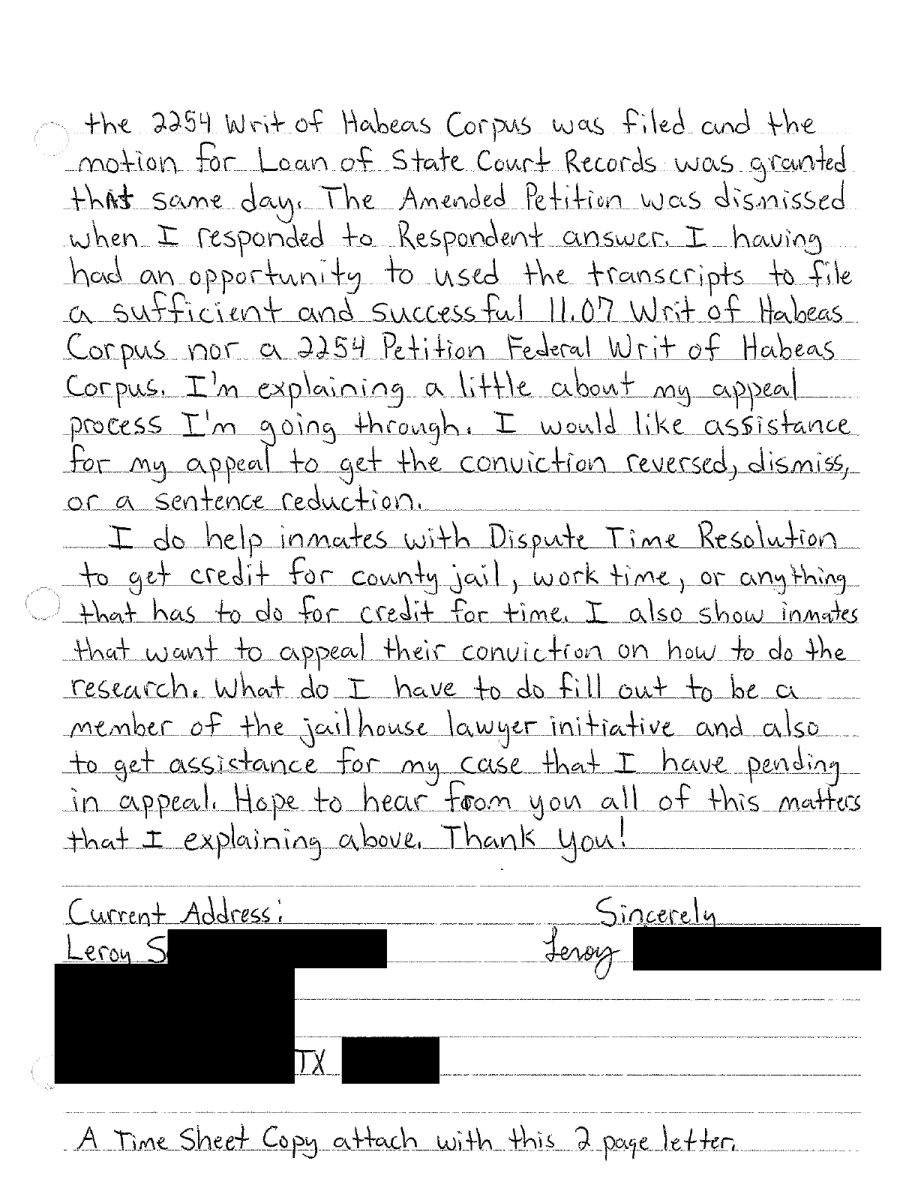 the 2254 Writ of Habeas Corpus was filed and the
motion for Loan of State Court Records was granted
that same day. The Amended Petition was dismissed
when I responded to Respondent answer. I having
had an opportunity to used the transcripts to file
a sufficient and successful 11.07 Writ of Habeas
Corpus nor a 2254 Petition Federal Writ of Habeas
Corpus. I'm explaining a little about my appeal
process I'm going through. I would like assistance
for my appeal to get the conviction reversed, dismiss,
or a sentence reduction.
I do help inmates with Dispute Time Resolution
to get credit for county jail, work time, or anything
that has to do for credit for time. I also show inmates
that want to appeal their conviction on how to do the
research. What do I have to do fill out to be a
member of the jailhouse lawyer initiative and also
to get assistance for my case that I have pending
in appeal. Hope to hear from you all of this matters
that I explaining above. Thank You!
Current Address: Sincerely
Leroy S Leroy
TX
A Time Sheet Copy attach with this 2 page letter.